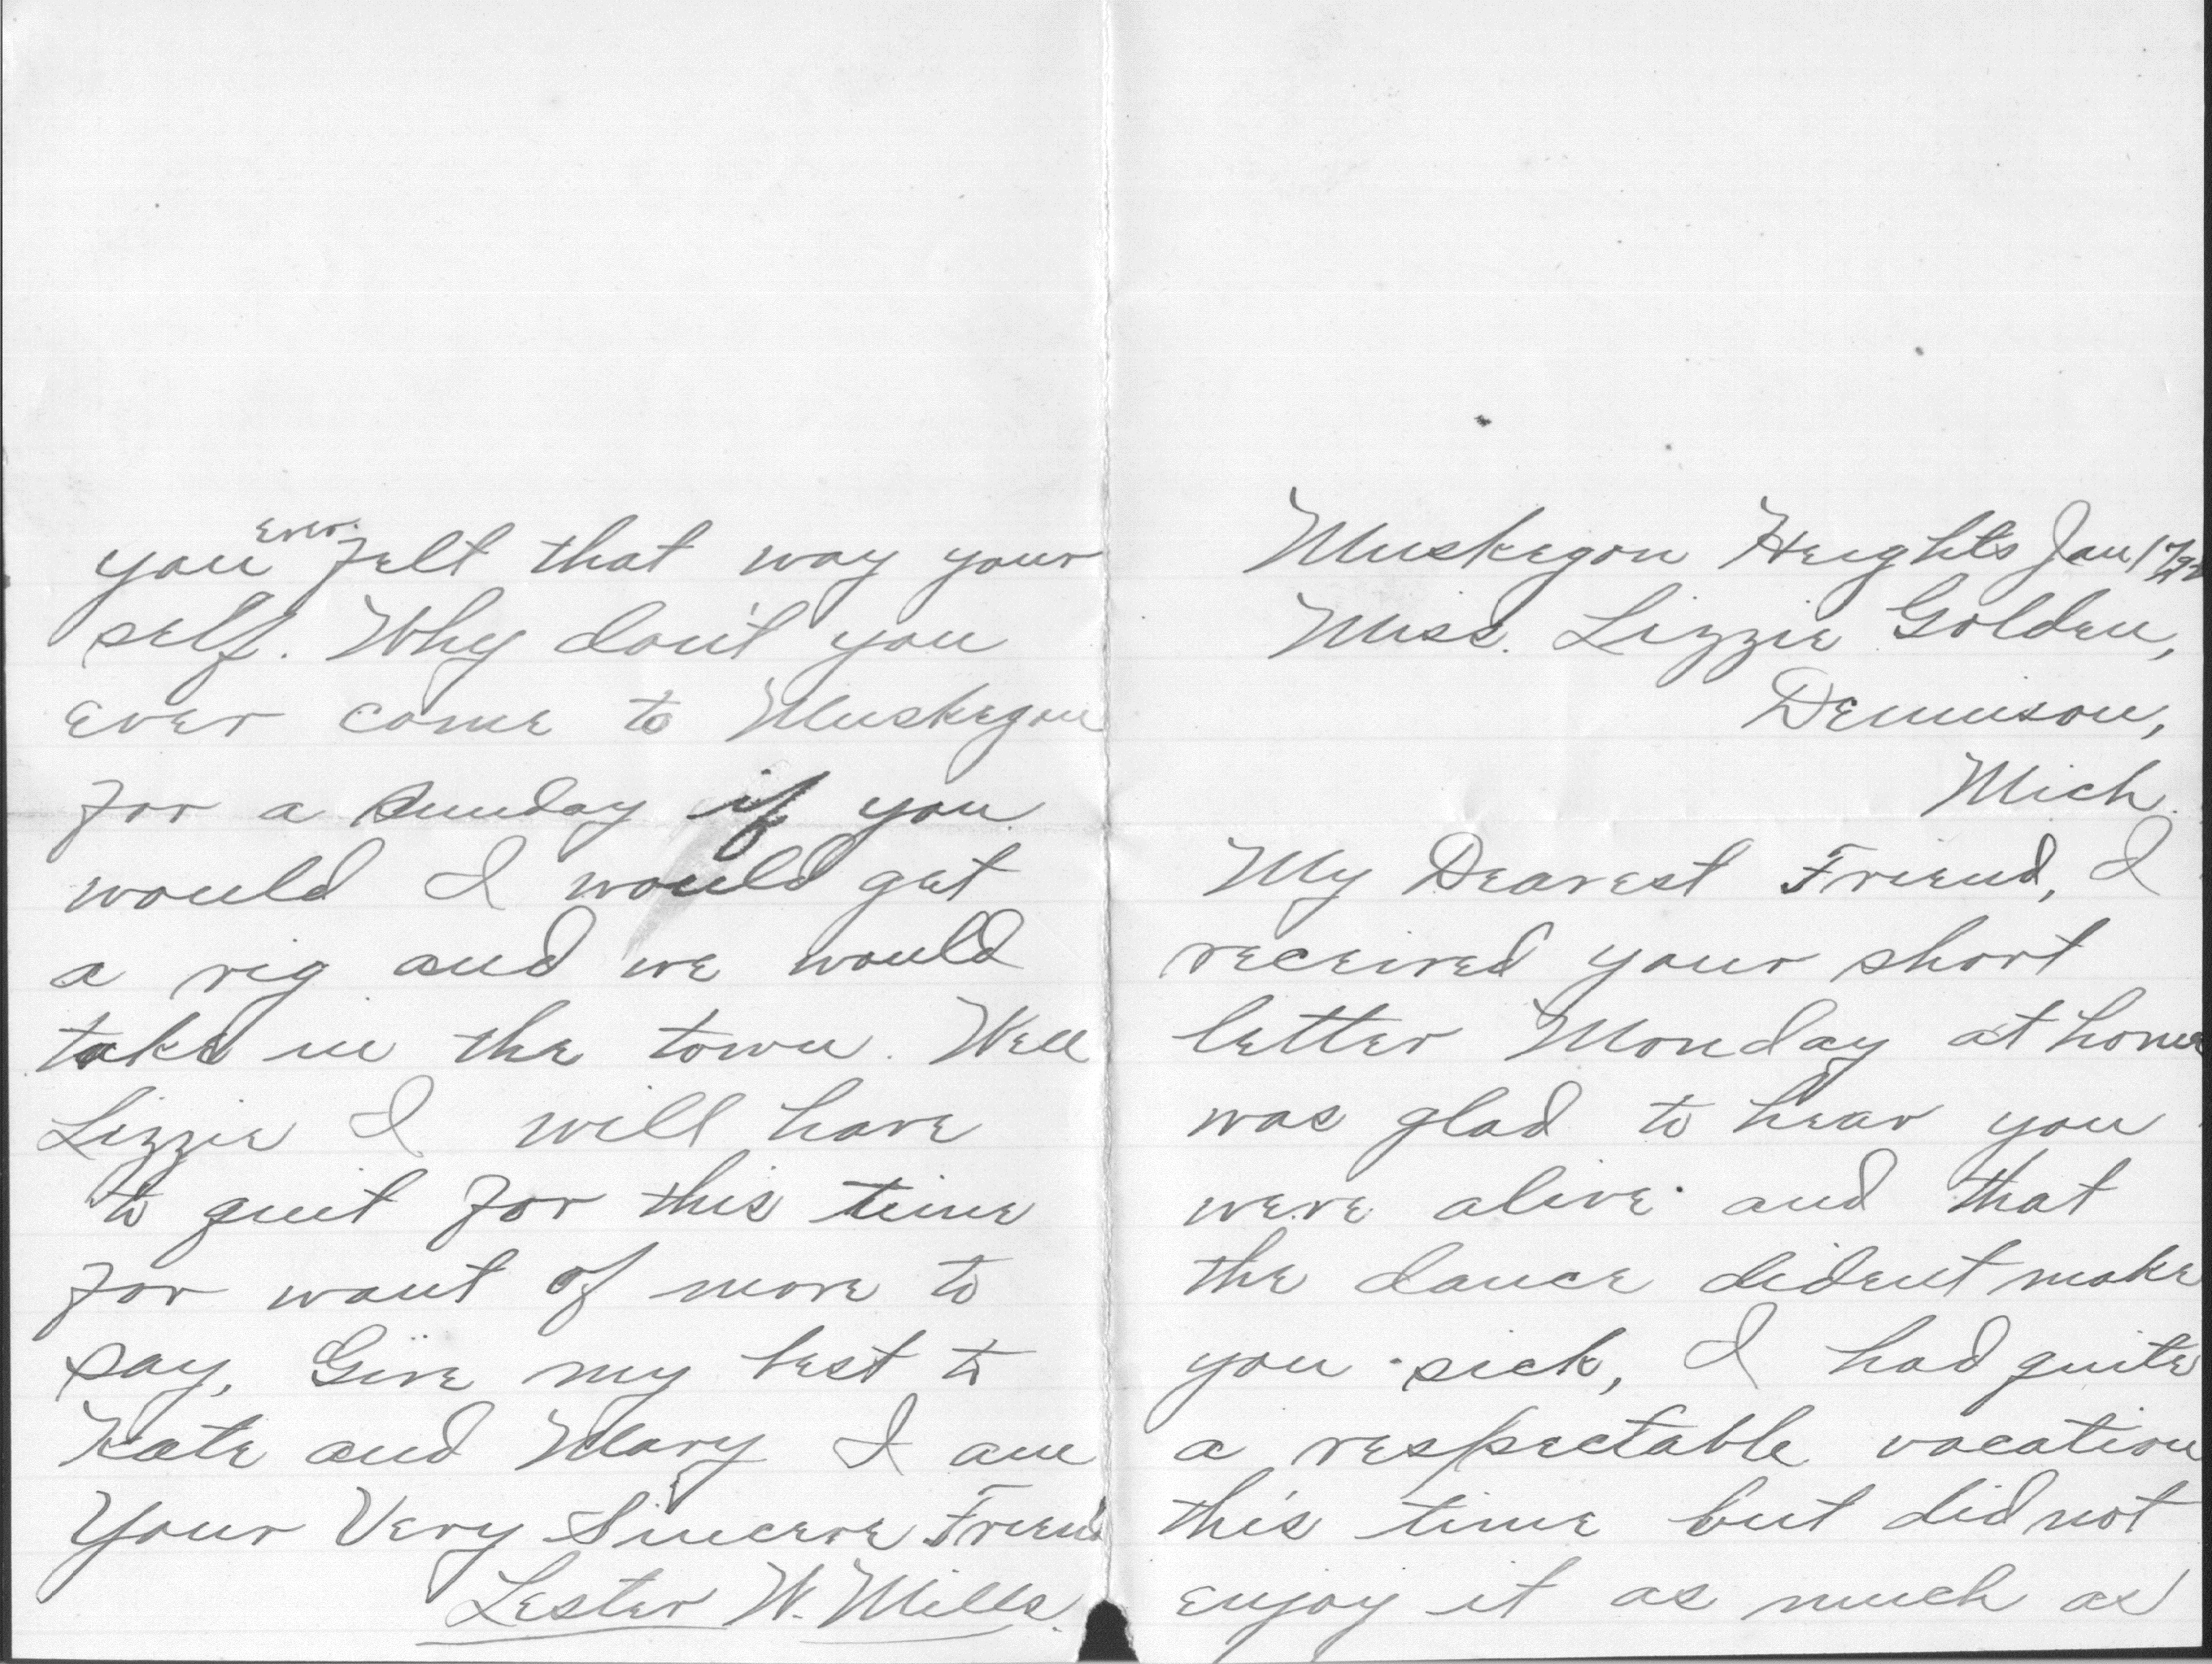 Muskegon Heights Jan
Miss. Lizzie Golden,
Dennison,
Mich.
My Dearest Friend, I
received your short
letter Monday at home
was glad to hear you
were alive and that
the dance dident make
you sick, I had quite
a respectable vacation
this time but did not
enjoy it as much as
you ever felt that way your
self. Why don't you
ever come to Muskegon
for a Sunday if you
would I would get
a rig and we would
take in the town. Well
Lizzie I will have
to quit for this time
for want of more to
say, Give my best to
Kate and Mary I am
Your Very Sincere Friend
Lester W. Mills.